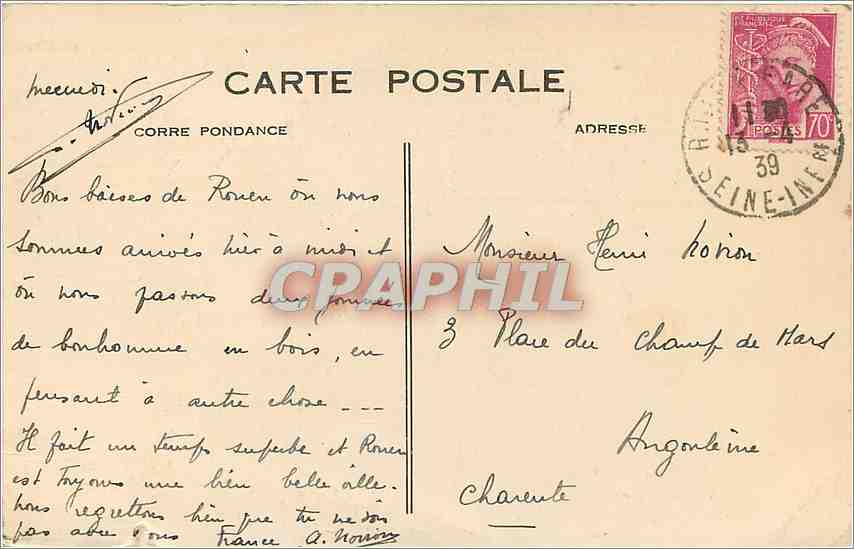 CARTE POSTALE
CORRE PONDANCE
ADRESSE
REPUBLIQUE FRANCAISE
POSTES 70c
13 -4
39
SEINE-INFRE
mercredi.
Bons baises de Rouen où nous
sommes arrivés hier à midi et
où nous passons deux journées
de bonhomme en bois, en
pensant à autre chose ---
Il fait un temps superbe et Rouen
est toujours une bien belle ville.
nous regrettons bien que tu ne sois
pas avec nous France A.
Monsieur Henri
3 Place du Champ de Mars
Angoulême
Charente
CPAPHIL